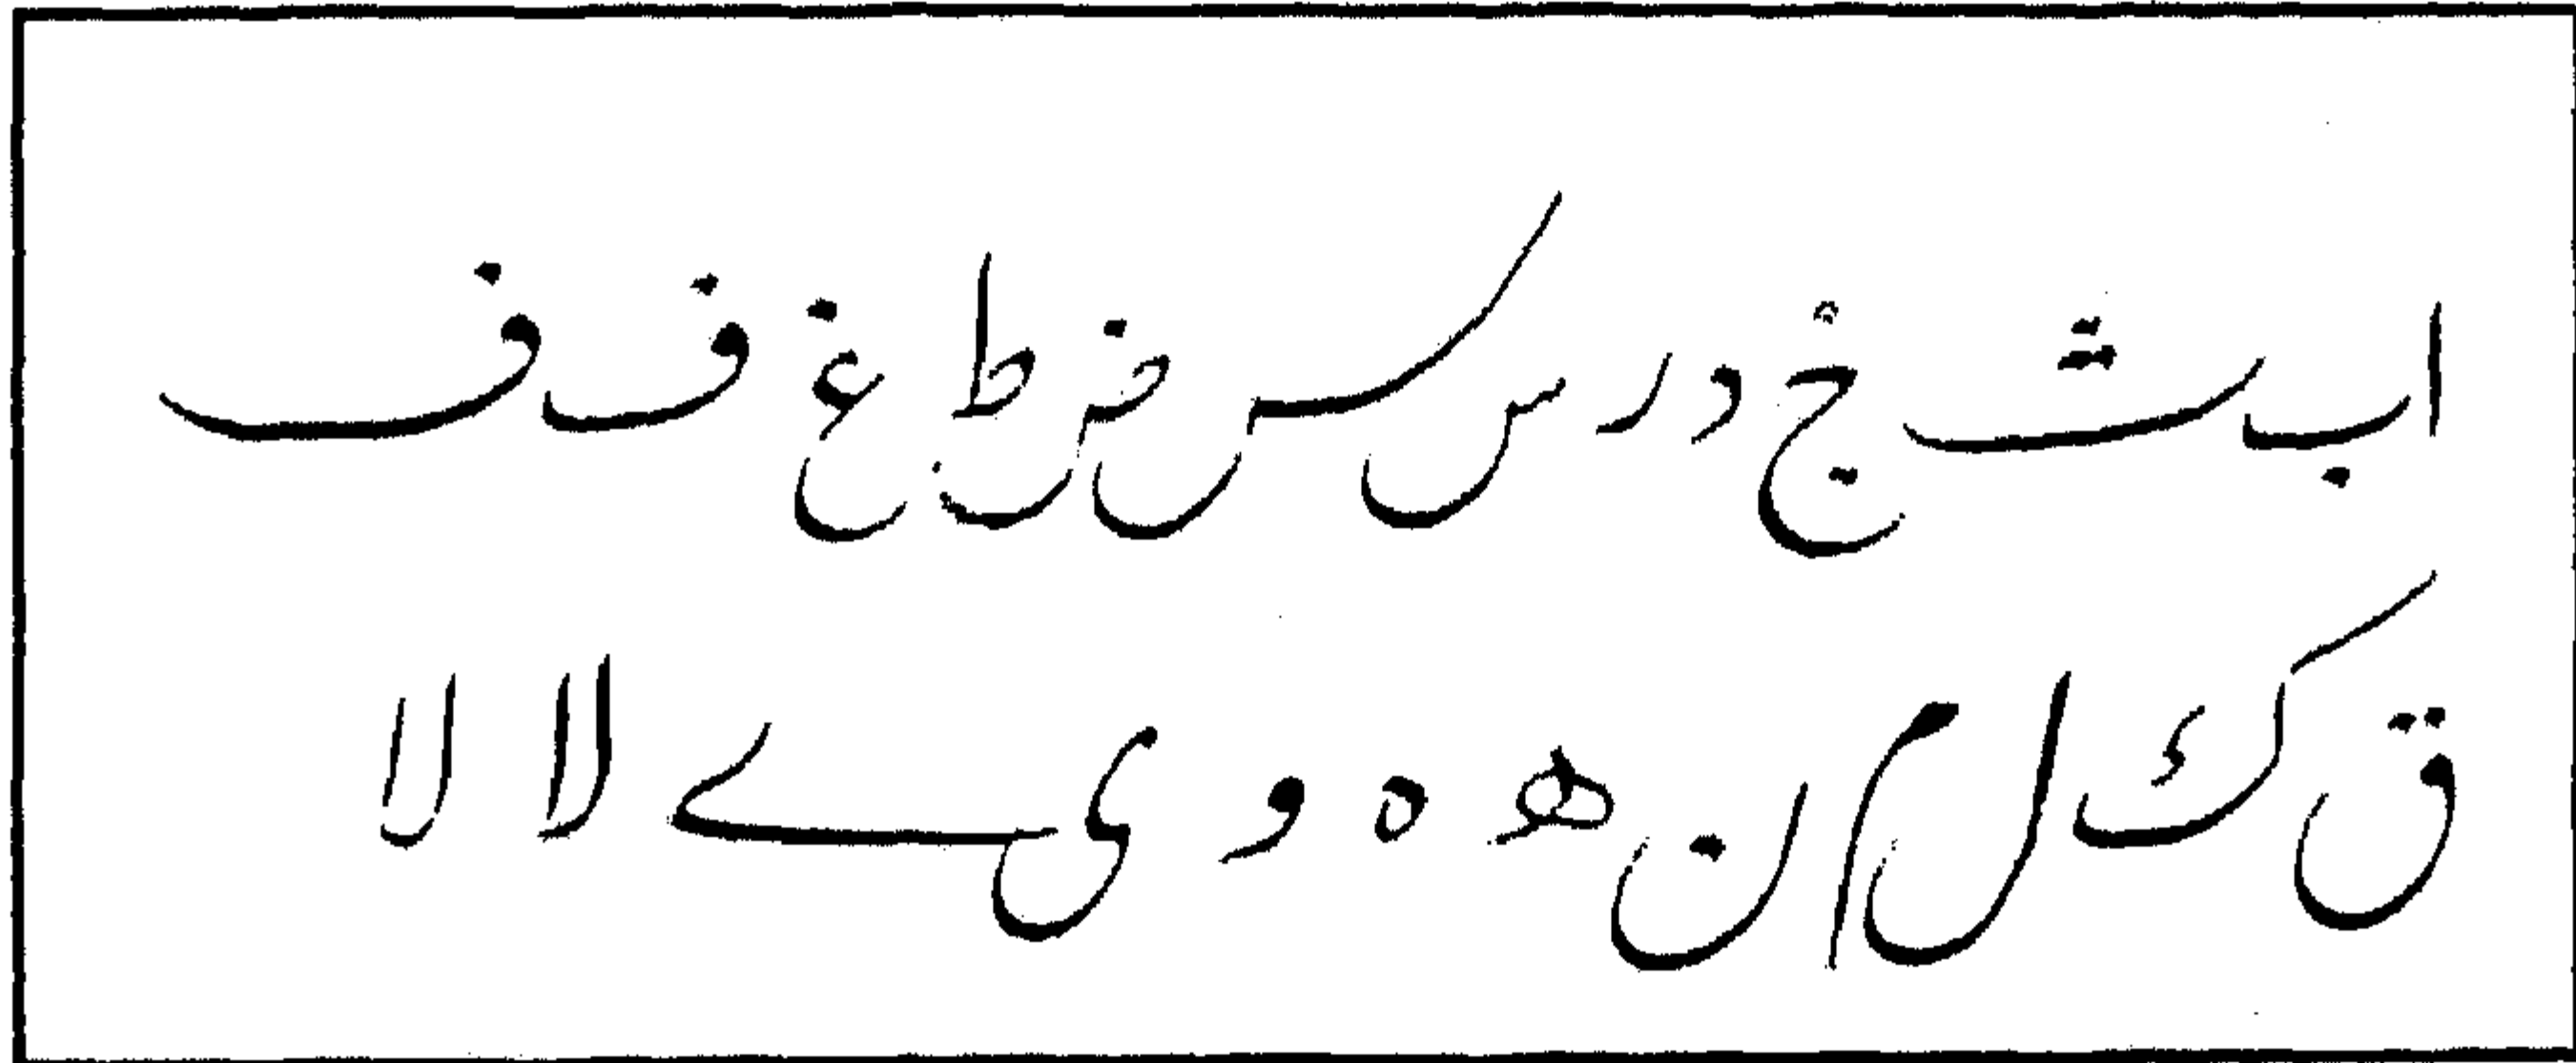 ا ب ث خ د ر س س ض ط غ ف ف
ق ك ل م ن ه ه و ى ے لا لا